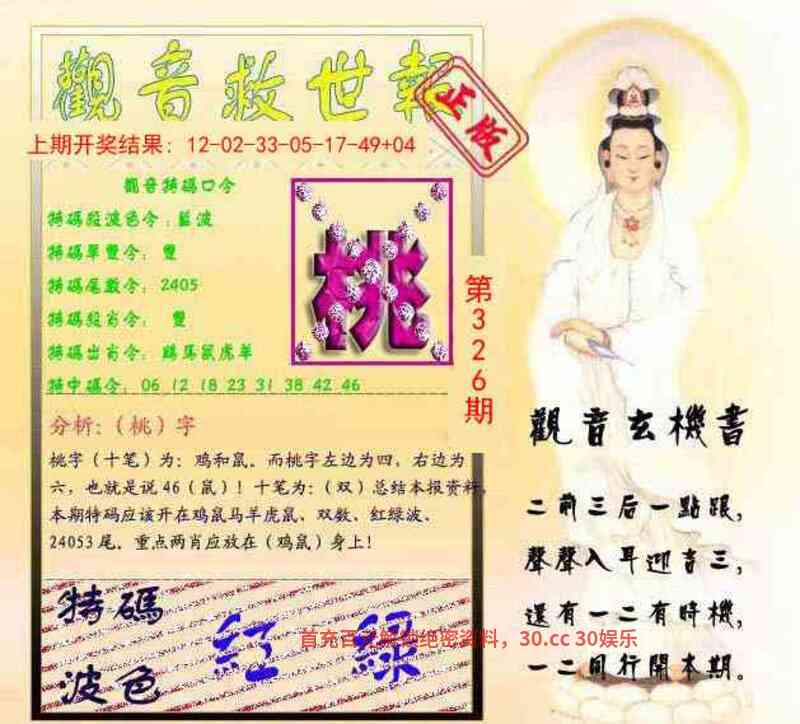 觀音救世報
正版
上期开奖结果：12-02-33-05-17-49+04
觀音特碼口令
特碼段波色令：藍波
特碼單雙令：雙
特碼尾數令：2405
特碼段肖令：雙
特碼出肖令：鷄馬鼠虎羊
特中碼令：06 12 18 23 31 38 42 46
桃
第326期
分析：（桃）字
桃字（十笔）为：鸡和鼠。而桃字左边为四，右边为
六，也就是说46（鼠）！十笔为：（双）总结本报资料，
本期特码应该开在鸡鼠马羊虎鼠、双数、红緑波、
24053尾。重点两肖应放在（鸡鼠）身上！
特碼
波色
紅 綠
首充百 绝密资料，30.cc 30娱乐
觀音玄機書
二前三后一點跟，
聲聲入耳迎吉三，
還有一二有時機，
一二同行開本期。